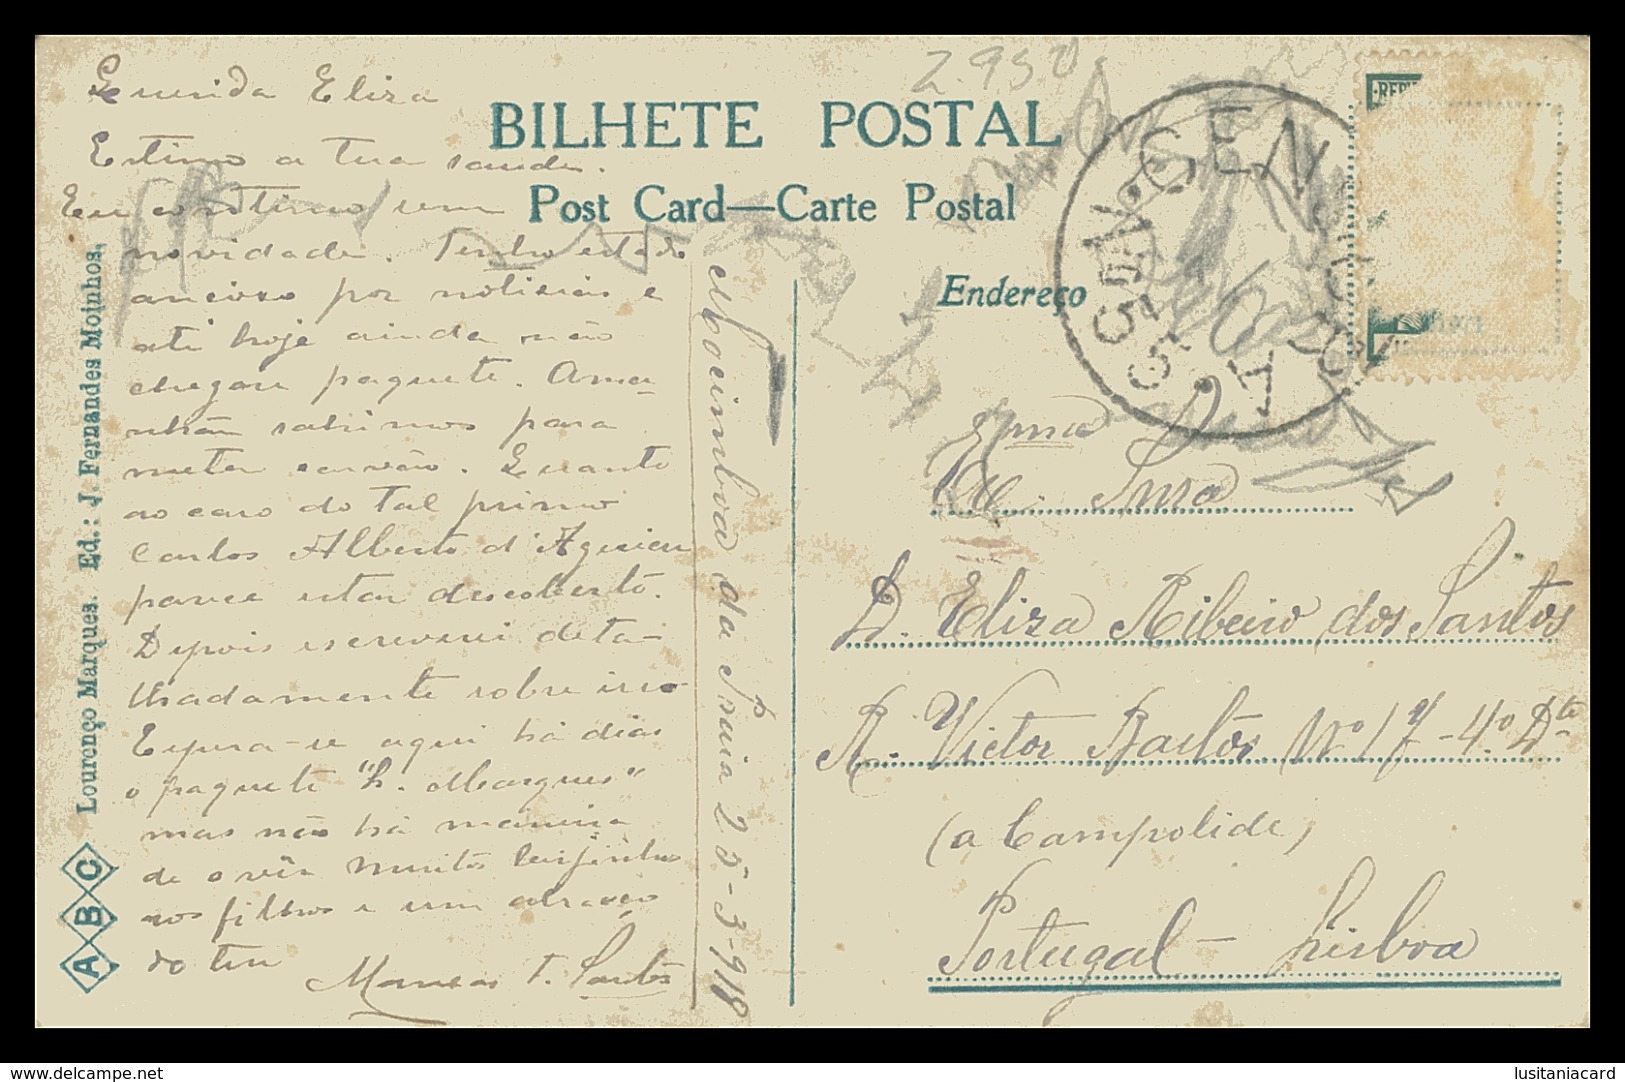 BILHETE POSTAL
Post Card—Carte Postal
Endereço
Querida Eliza
Estimo a tua saude.
Eu continuo sem
novidade. Tenho estado
ancioso por noticias e
até hoje ainda não
chegou paquete. Ama-
nhã sahimos para
meter carvão. Quanto
ao caso do tal primo
Carlos Alberto d'Aguiar
parece estar descoberto.
Depois escreverei deta-
lhadamente sobre isso
Espera-se aqui há dias
o paquete "L. Marques"
mas não há maneira
de o vêr Muitos beijinhos
aos filhos e um abraço
do teu
Manoel T. Santos
Mocimboa da Praia 25-3-918
Lourenço Marques. Ed.: J. Fernandes Moinhos.
A B C
2.950
CENSURA
Exma
Sma
D. Eliza Ribeiro dos Santos
R. Victor Bastos Nº 17-4º Dto
(a Campolide)
Portugal - Lisboa
www.delcampe.net
lusitaniacard